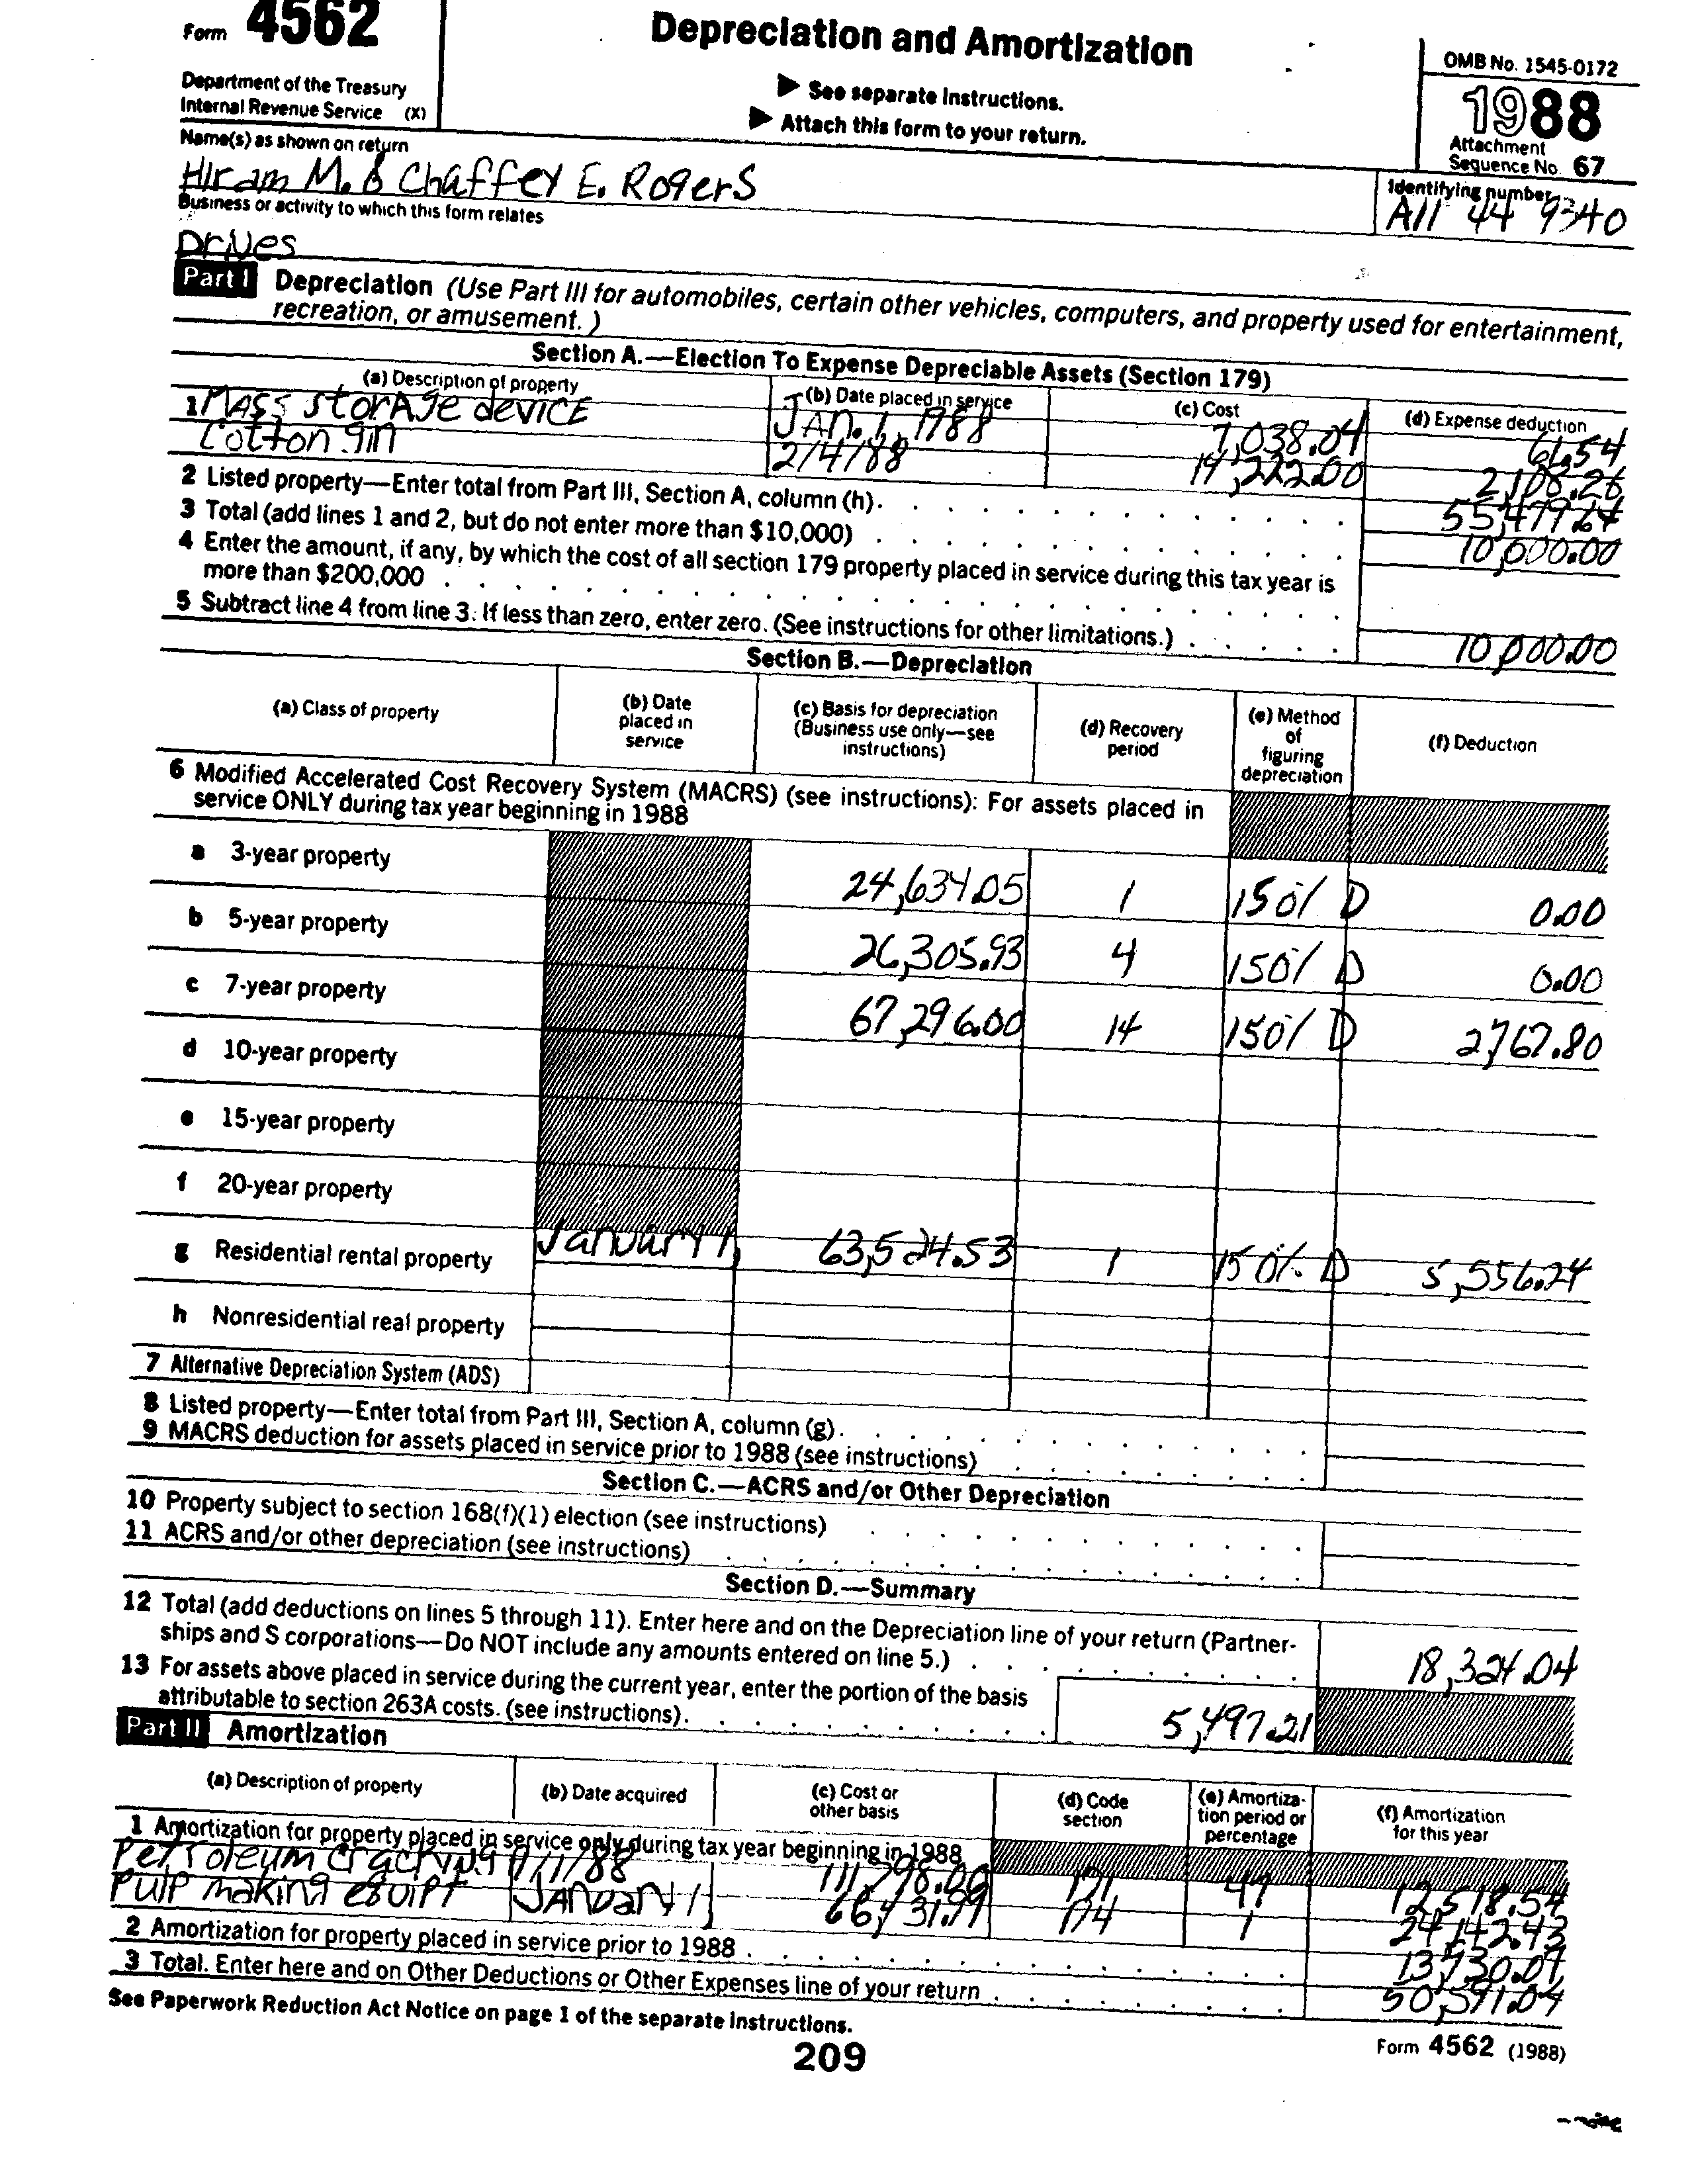 Form 4562
Department of the Treasury
Internal Revenue Service (X)
Depreciation and Amortization
▶ See separate instructions.
▶ Attach this form to your return.
OMB No. 1545-0172
1988
Attachment
Sequence No. 67
Name(s) as shown on return
Hiram M. & Chaffey E. Rogers
Identifying number
All 44 9340
Business or activity to which this form relates
Drives
Part I Depreciation (Use Part III for automobiles, certain other vehicles, computers, and property used for entertainment,
recreation, or amusement.)
Section A.—Election To Expense Depreciable Assets (Section 179)
(a) Description of property (b) Date placed in service (c) Cost (d) Expense deduction
1 Mass storage device JAN. 1, 1988 7,038.04 61.54
Cotton gin 2/4/88 14,222.00 2,108.26
2 Listed property—Enter total from Part III, Section A, column (h). 55,479.64
3 Total (add lines 1 and 2, but do not enter more than $10,000) 10,000.00
4 Enter the amount, if any, by which the cost of all section 179 property placed in service during this tax year is
more than $200,000
5 Subtract line 4 from line 3. If less than zero, enter zero. (See instructions for other limitations.) 10,000.00
Section B.—Depreciation
(a) Class of property
(b) Date placed in service
(c) Basis for depreciation (Business use only—see instructions)
(d) Recovery period
(e) Method of figuring depreciation
(f) Deduction
6 Modified Accelerated Cost Recovery System (MACRS) (see instructions): For assets placed in
service ONLY during tax year beginning in 1988
a 3-year property 24,634.05 1 150% D 0.00
b 5-year property 26,305.93 4 150% D 0.00
c 7-year property 67,296.00 14 150% D 2,767.80
d 10-year property
e 15-year property
f 20-year property
g Residential rental property January 1, 63,524.53 1 150% D 5,556.24
h Nonresidential real property
7 Alternative Depreciation System (ADS)
8 Listed property—Enter total from Part III, Section A, column (g).
9 MACRS deduction for assets placed in service prior to 1988 (see instructions)
Section C.—ACRS and/or Other Depreciation
10 Property subject to section 168(f)(1) election (see instructions)
11 ACRS and/or other depreciation (see instructions)
Section D.—Summary
12 Total (add deductions on lines 5 through 11). Enter here and on the Depreciation line of your return (Partner-
ships and S corporations—Do NOT include any amounts entered on line 5.) 18,324.04
13 For assets above placed in service during the current year, enter the portion of the basis
attributable to section 263A costs. (see instructions). 5,497.21
Part II Amortization
(a) Description of property
(b) Date acquired
(c) Cost or other basis
(d) Code section
(e) Amortization period or percentage
(f) Amortization for this year
1 Amortization for property placed in service only during tax year beginning in 1988
Petroleum cracking 111,798.00 171 47 12,518.54
Pulp making equipt January 1, 174 1 24,142.43
2 Amortization for property placed in service prior to 1988
3 Total. Enter here and on Other Deductions or Other Expenses line of your return
See Paperwork Reduction Act Notice on page 1 of the separate instructions.
209
Form 4562 (1988)